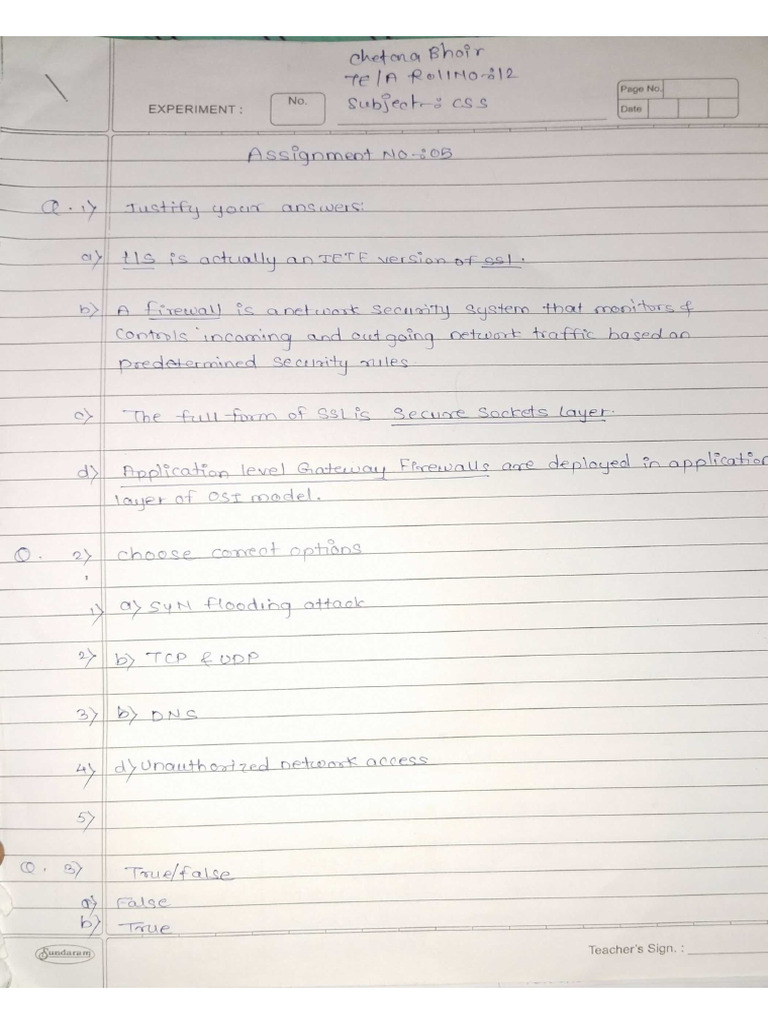 Chetana Bhoir
TE/A Roll No-:12
Subject-: CSS
EXPERIMENT :
No.
Page No.
Date
Assignment No-:05
Q. 1) Justify your answers:
a) TLS is actually an IETF version of SSL.
b) A firewall is a network security system that monitors &
controls incoming and outgoing network traffic based on
predetermined security rules
c) The full form of SSL is Secure Sockets Layer.
d) Application level Gateway Firewalls are deployed in application
layer of OSI model.
Q. 2) choose correct options
1) a) SYN flooding attack
2) b) TCP & UDP
3) b) DNS
4) d) Unauthorized network access
5)
Q. 3) True/false
a) False
b) True
Sundaram
Teacher's Sign. :